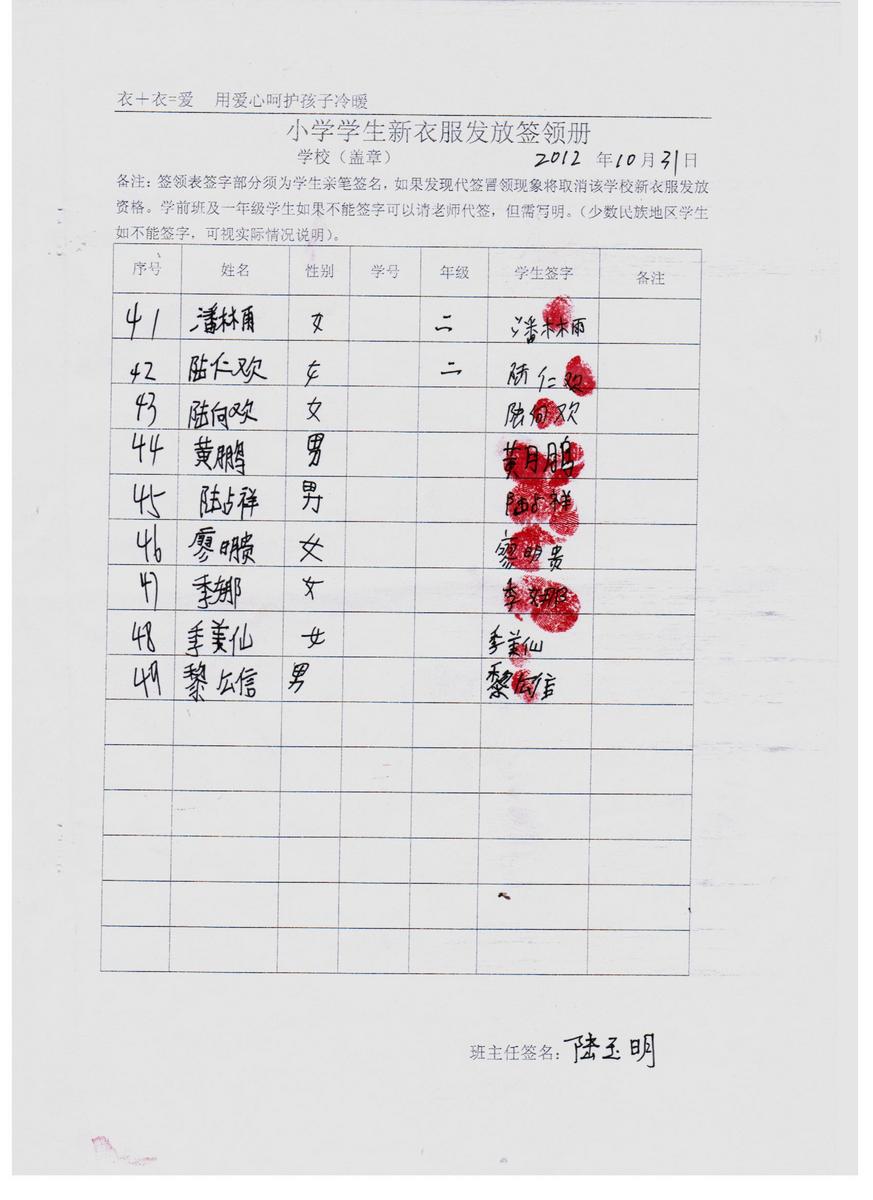 衣+衣=爱 用爱心呵护孩子冷暖
小学学生新衣服发放签领册
学校（盖章） 2012 年10月31日
备注：签领表签字部分须为学生亲笔签名，如果发现代签冒领现象将取消该学校新衣服发放
资格。学前班及一年级学生如果不能签字可以请老师代签，但需写明。（少数民族地区学生
如不能签字，可视实际情况说明）。
序号 姓名 性别 学号 年级 学生签字 备注
41 潘林雨 女 二 潘林雨
42 陆仁欢 女 二 陆仁欢
43 陆向欢 女 陆向欢
44 黄鹏 男 黄鹏
45 陆占祥 男 陆占祥
46 廖明贵 女 廖明贵
47 季娜 女 季娜
48 季美仙 女 季美仙
49 黎公信 男 黎公信
班主任签名：陆玉明